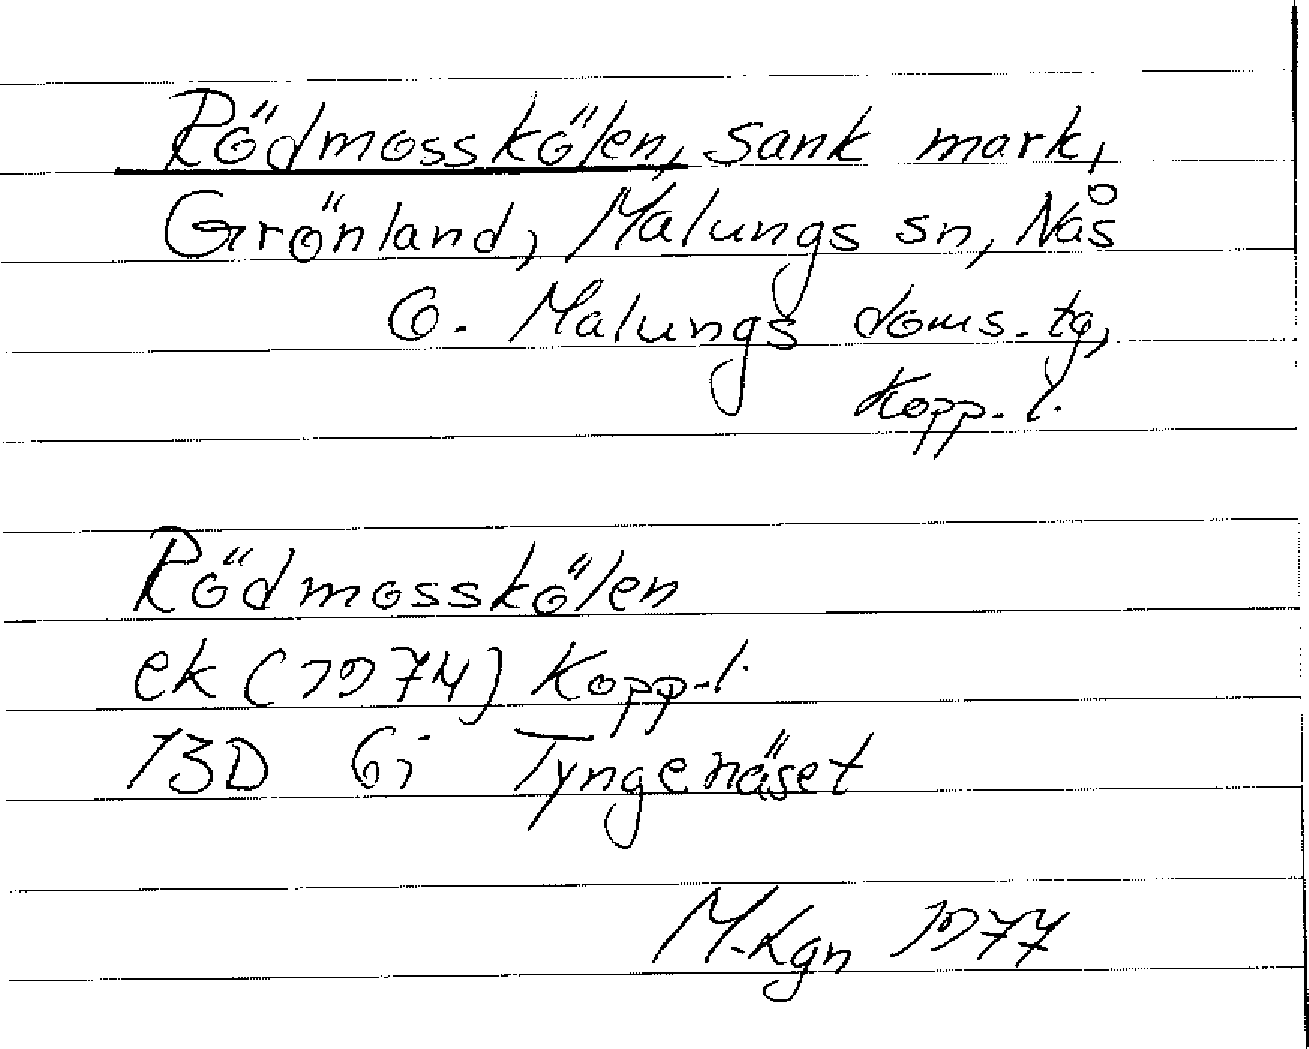 Rödmosskölen, sank mark,
Grönland, Malungs sn, Nås
o. Malungs doms. tg,
Kopp. l.
Rödmosskölen
ek (1974) Kopp. l.
13D 6i Tyngenäset
M-Kgn 1977